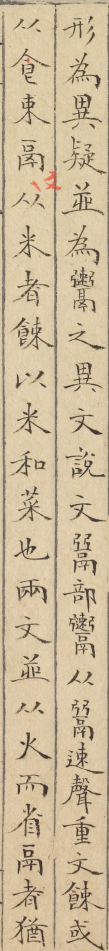 形為異疑並為鬻之異文說文䰜部鬻从䰜速聲重文餗或
从食束鬲从米者餗以米和菜也兩文並从火而省鬲者猶